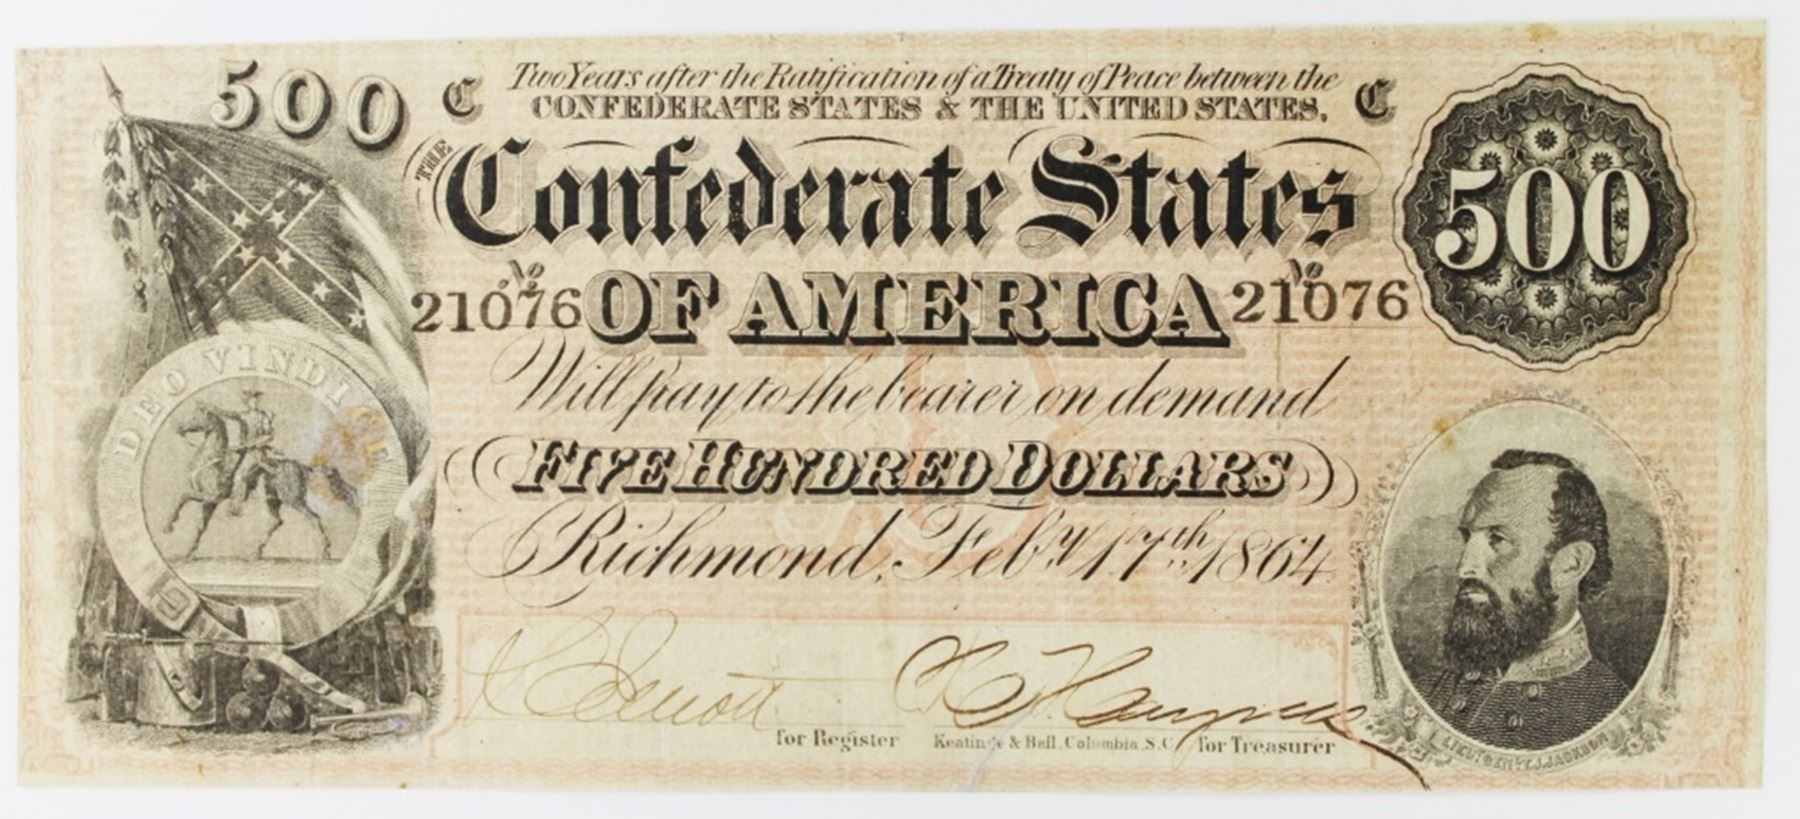 500 C Two Years after the Ratification of a Treaty of Peace between the C
CONFEDERATE STATES & THE UNITED STATES,
500
THE Confederate States
No 21076 OF AMERICA No 21076
Will pay to the bearer on demand
FIVE HUNDRED DOLLARS
Richmond, Feby 17th 1864
DEO VINDICE
for Register Keatinge & Ball, Columbia, S.C. for Treasurer
LIEUT. GEN. T.J. JACKSON